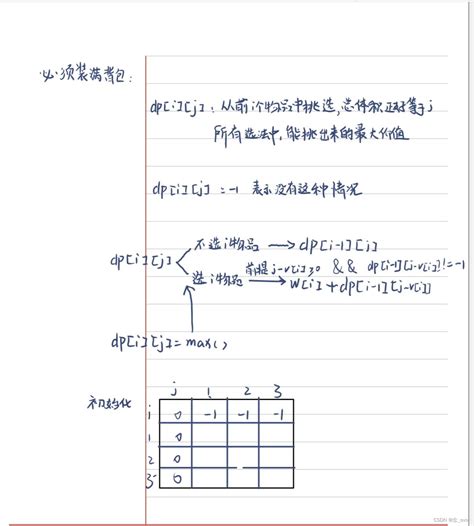 必须装满背包:
dp[i][j]: 从前i个物品中挑选,总体积正好等于j
所有选法中,能挑出来的最大价值
dp[i][j]=-1 表示没有这种情况
不选i物品 → dp[i-1][j]
dp[i][j]
前提 j-v[i]≥0 && dp[i-1][j-v[i]]!=-1
选i物品 → w[i]+dp[i-1][j-v[i]]
dp[i][j]=max()
初始化
j 1 2 3
i 0 -1 -1 -1
1 0
2 0
3 0